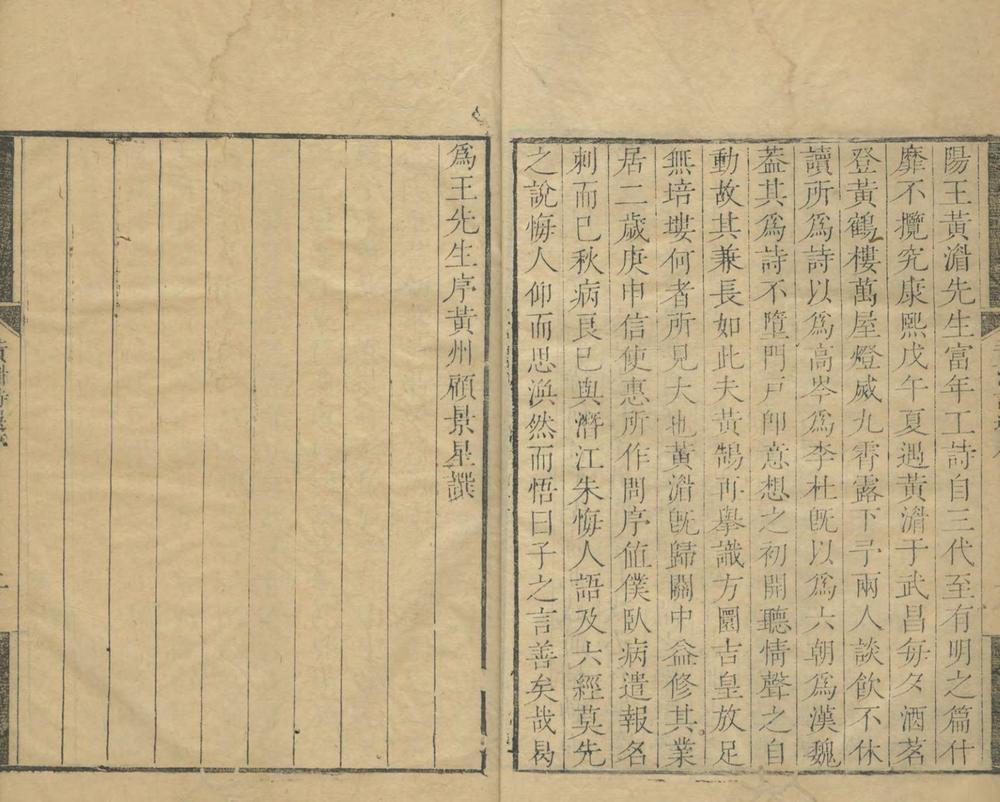 陽王黃湄先生富年工詩自三代至有明之篇什
靡不攬究康熙戊午夏遇黃湄于武昌每夕酒茗
登黃鶴樓萬屋燈滅九霄露下予兩人談飲不休
讀所為詩以為高岑為李杜旣以為六朝為漢魏
蓋其為詩不墮門戶卽意想之初開聽情聲之自
動故其兼長如此夫黃鵠再舉識方圜吉皇放足
無培塿何者所見大也黃湄旣歸關中益修其業
居二歲庚申信使惠所作問序值僕臥病遣報名
刺而已秋病良已與潛江朱悔人語及六經莫先
之說悔人仰而思渙然而悟曰子之言善矣哉曷
爲王先生序黃州顧景星譔